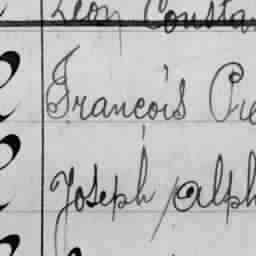 Leon Constan
Francois Pie
Joseph Alph